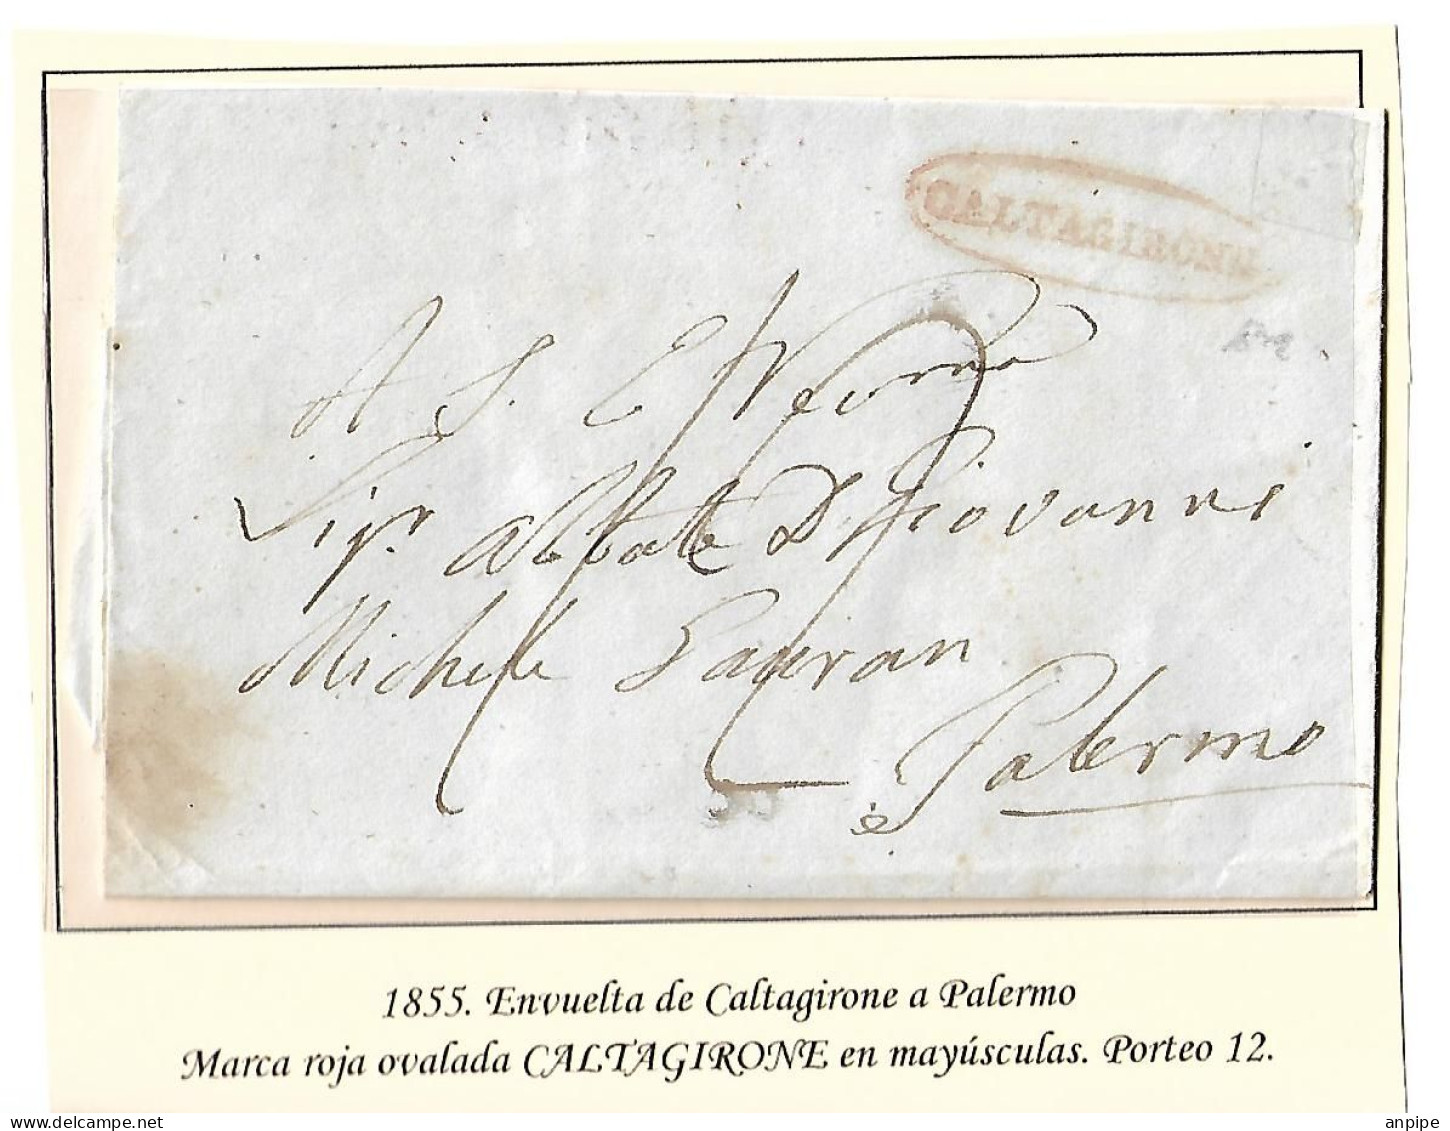 CALTAGIRONE
A S. E. Revma
Sigr. Abbate Dn Giovanni
Michele
Palermo
1855. Envuelta de Caltagirone a Palermo
Marca roja ovalada CALTAGIRONE en mayúsculas. Porteo 12.
www.delcampe.net
anpipe